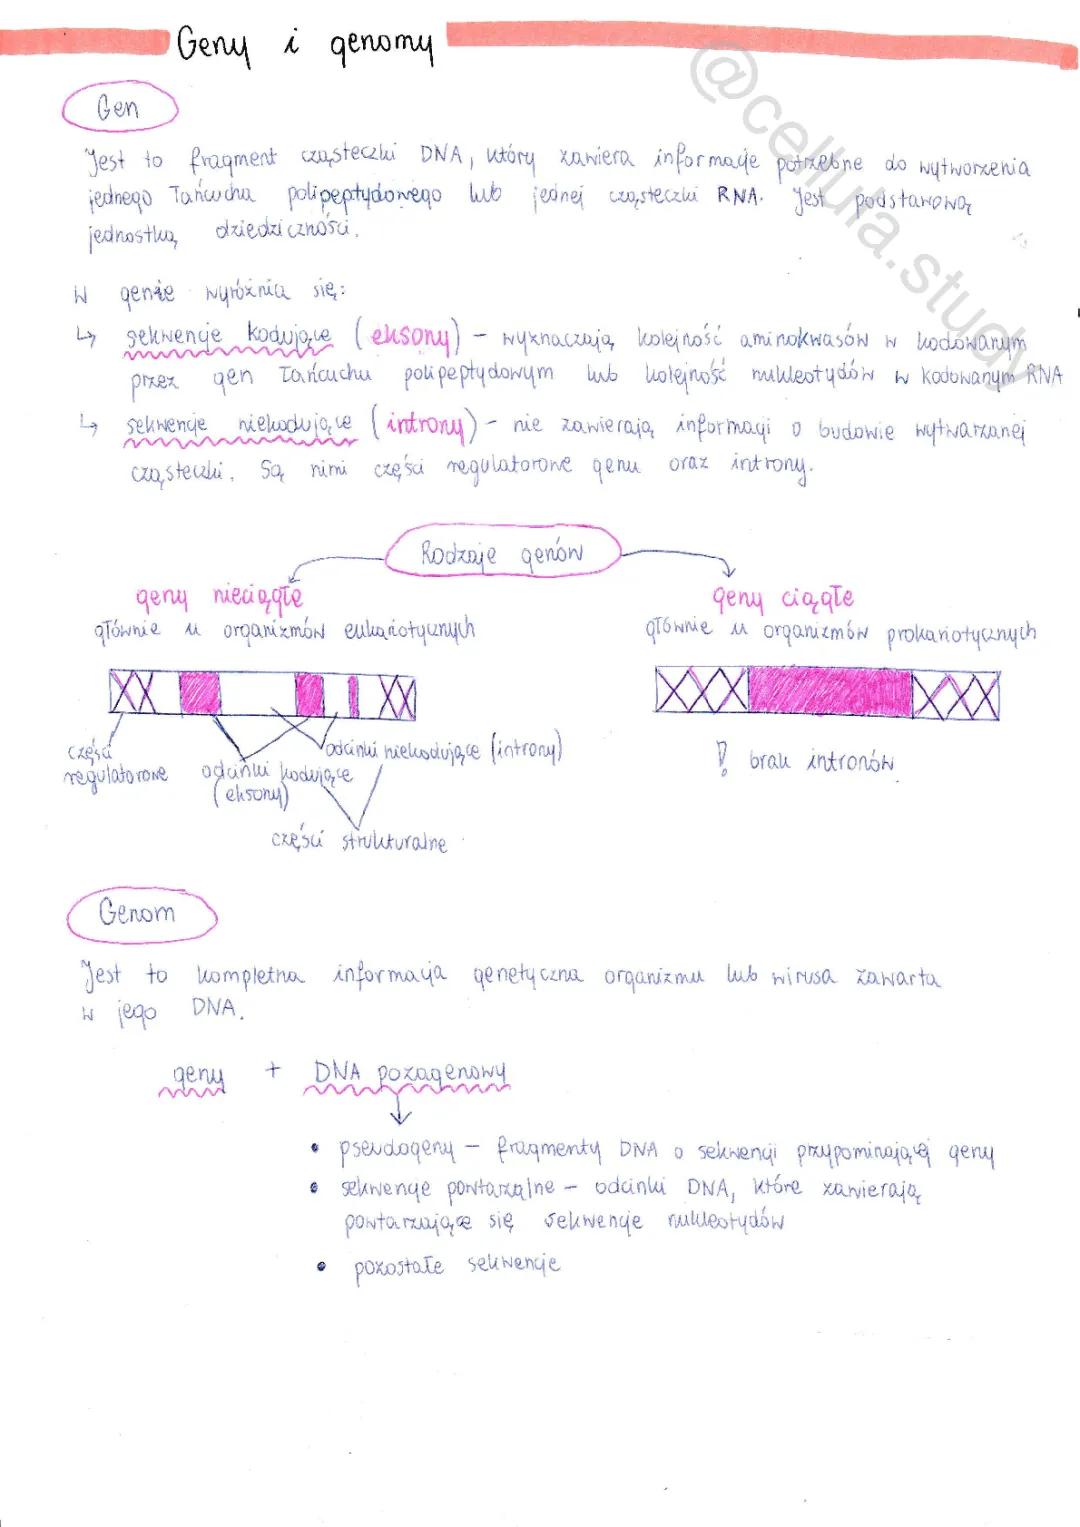 Geny i genomy
@cellula.study
Gen
Jest to fragment cząsteczki DNA, który zawiera informacje potrzebne do wytworzenia
jednego łańcucha polipeptydowego lub jednej cząsteczki RNA. Jest podstawową
jednostką dziedziczności.
W genie wyróżnia się:
↳ sekwencje kodujące (eksony) - wyznaczają kolejność aminokwasów w kodowanym
przez gen łańcuchu polipeptydowym lub kolejność nukleotydów w kodowanym RNA
↳ sekwencje niekodujące (introny) - nie zawierają informacji o budowie wytwarzanej
cząsteczki. Są nimi części regulatorowe genu oraz introny.
Rodzaje genów
geny nieciągłe
głównie u organizmów eukariotycznych
geny ciągłe
głównie u organizmów prokariotycznych
części
regulatorowe
odcinki kodujące
(eksony)
odcinki niekodujące (introny)
części strukturalne
! brak intronów
Genom
Jest to kompletna informacja genetyczna organizmu lub wirusa zawarta
w jego DNA.
geny + DNA pozagenowy
• pseudogeny - fragmenty DNA o sekwencji przypominającej geny
• sekwencje powtarzalne - odcinki DNA, które zawierają
powtarzające się sekwencje nukleotydów
• pozostałe sekwencje